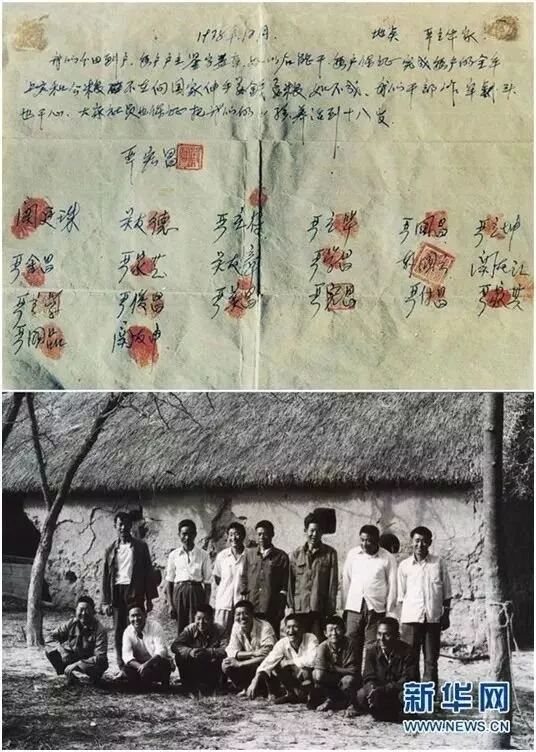 1978年12月 地点 严立华家
我们分田到户，每户户主签字盖章，如以后能干，每户保证完成每户的全年
上交和公粮，不在向国家伸手要钱要粮，如不成，我们干部作牢刹头
也干心，大家社员也保证把我们的小孩养活到十八岁
严宏昌
关廷珠 关友德 严立符 严立华 严国昌 严立坤
严金昌 严家芝 关友章 严学昌 韩国云 关友江
严立学 严俊昌 严美昌 严宏昌 严付昌 严家其
严国品 关友申
新华网
WWW.NEWS.CN